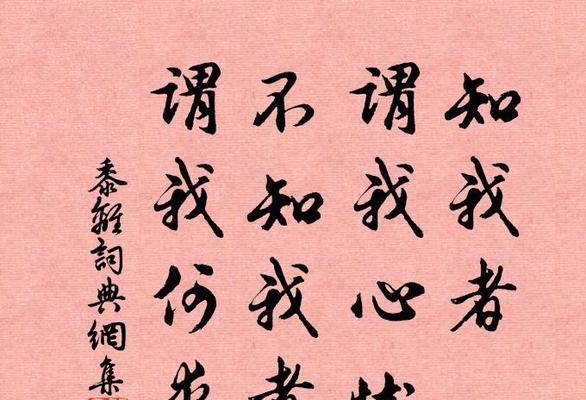 知我者
謂我心
不知我者
謂我何求
黍離詞典網集